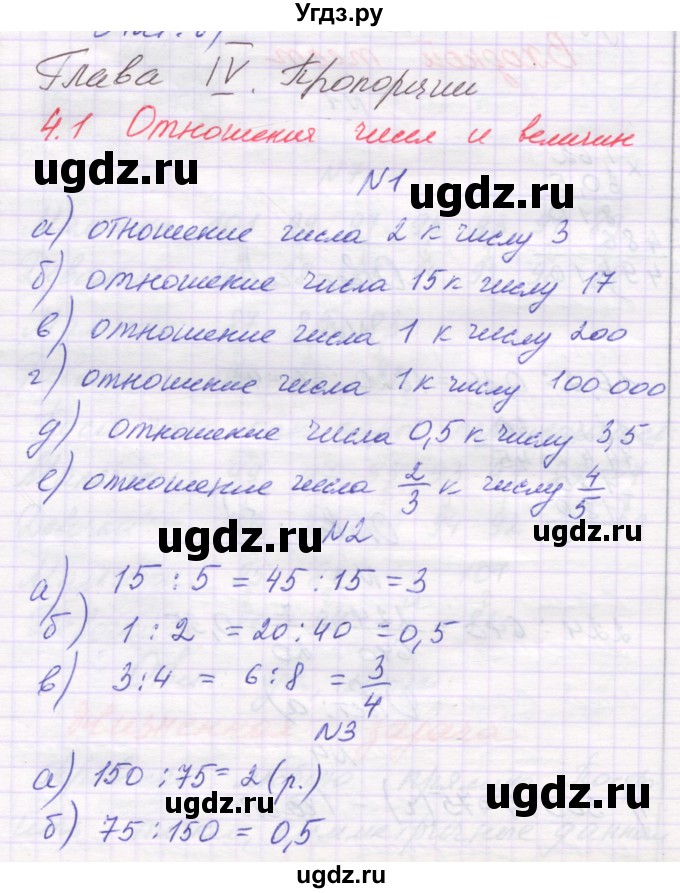 Угдз.ру
Глава IV. Пропорции
4.1 Отношения чисел и величин
N1
ugdz.ru ugdz.ru
а) отношение числа 2 к числу 3
б) отношение числа 15 к числу 17
в) отношение числа 1 к числу 200
г) отношение числа 1 к числу 100 000
ugdz.ru ugdz.ru
д) отношение числа 0,5 к числу 3,5
е) отношение числа 2/3 к числу 4/5
N2
ugdz.ru ugdz.ru
а) 15 : 5 = 45 : 15 = 3
б) 1 : 2 = 20 : 40 = 0,5
в) 3 : 4 = 6 : 8 = 3/4
N3
ugdz.ru
а) 150 : 75 = 2 (р.)
ugdz.ru ugdz.ru
б) 75 : 150 = 0,5
©ugdz.ru